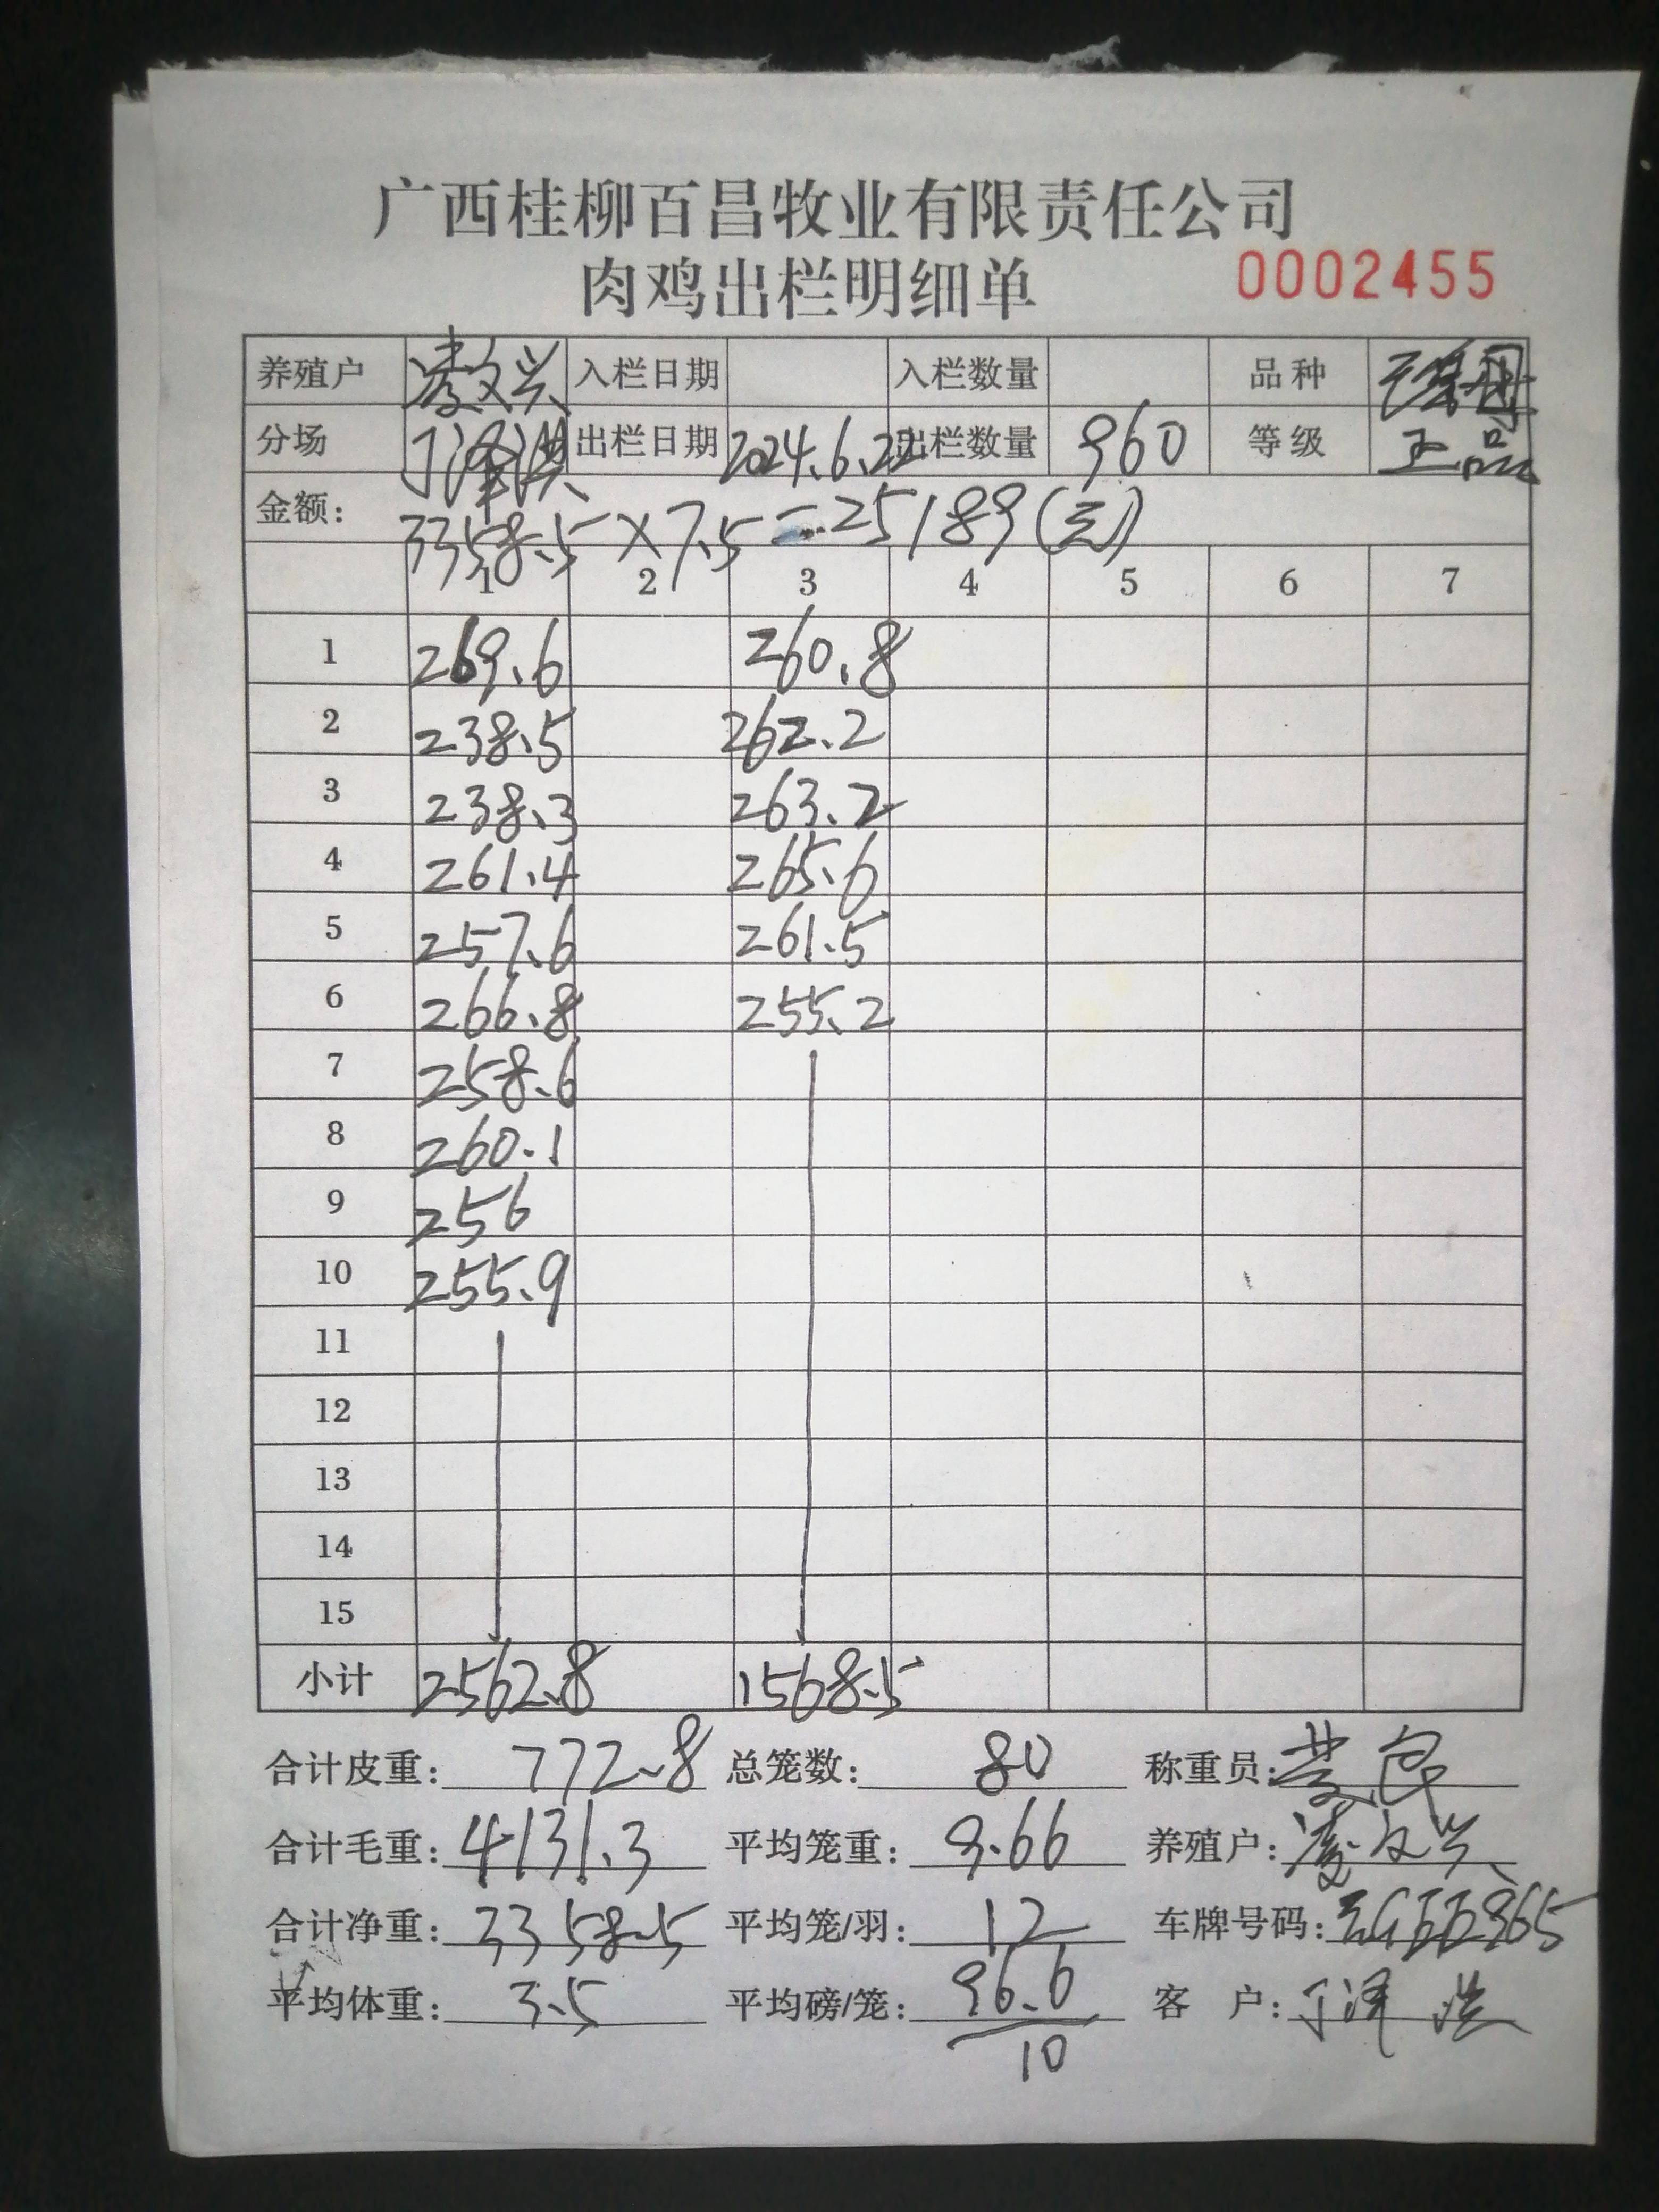 广西桂柳百昌牧业有限责任公司
肉鸡出栏明细单 0002455
养殖户 凌文兴 入栏日期 入栏数量 品种
分场 丁泽洪 出栏日期 2024.6.22 出栏数量 960 等级 正品
金额: 3358.5×7.5=25189(元)
1 2 3 4 5 6 7
1 269.6 260.8
2 238.5 262.2
3 238.3 263.2
4 261.4 265.6
5 257.6 261.5
6 266.8 255.2
7 258.6
8 260.1
9 256
10 255.9
11
12
13
14
15
小计 2562.8 1568.5
合计皮重: 772.8 总笼数: 80 称重员:
合计毛重: 4131.3 平均笼重: 9.66 养殖户: 凌文兴
合计净重: 3358.5 平均笼/羽: 12 车牌号码:
平均体重: 3.5 平均磅/笼: 96.6 客 户: 丁泽洪
10